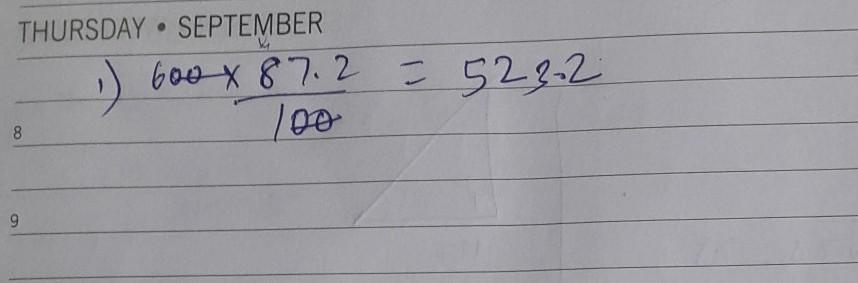 THURSDAY • SEPTEMBER
1) 600 × 87.2 = 523.2
100
8
9